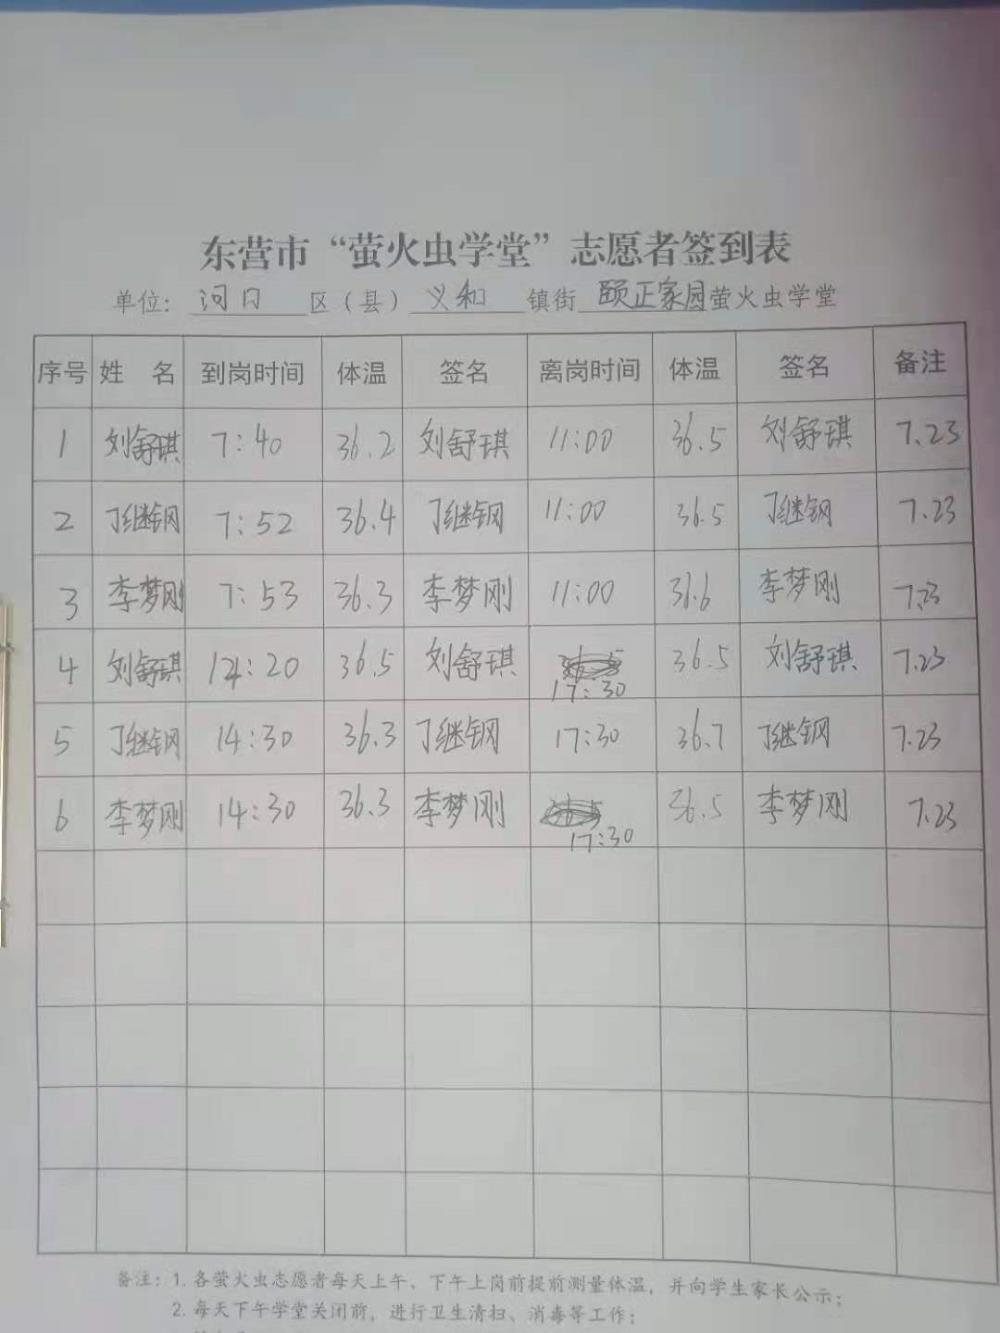 东营市“萤火虫学堂”志愿者签到表
单位：河口区（县）义和镇街颐正家园萤火虫学堂
序号 姓名 到岗时间 体温 签名 离岗时间 体温 签名 备注
1 刘舒琪 7:40 36.2 刘舒琪 11:00 36.5 刘舒琪 7.23
2 丁继钢 7:52 36.4 丁继钢 11:00 36.5 丁继钢 7.23
3 李梦刚 7:53 36.3 李梦刚 11:00 36.6 李梦刚 7.23
4 刘舒琪 14:20 36.5 刘舒琪 17:30 36.5 刘舒琪 7.23
5 丁继钢 14:30 36.3 丁继钢 17:30 36.7 丁继钢 7.23
6 李梦刚 14:30 36.3 李梦刚 17:30 36.5 李梦刚 7.23
备注：1. 各萤火虫志愿者每天上午、下午上岗前提前测量体温，并向学生家长公示；
2. 每天下午学堂关闭前，进行卫生清扫、消毒等工作；